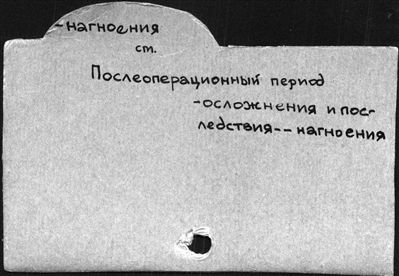 -нагноения
ст.
Послеоперационный период
-осложнения и пос-
ледствия--нагноения